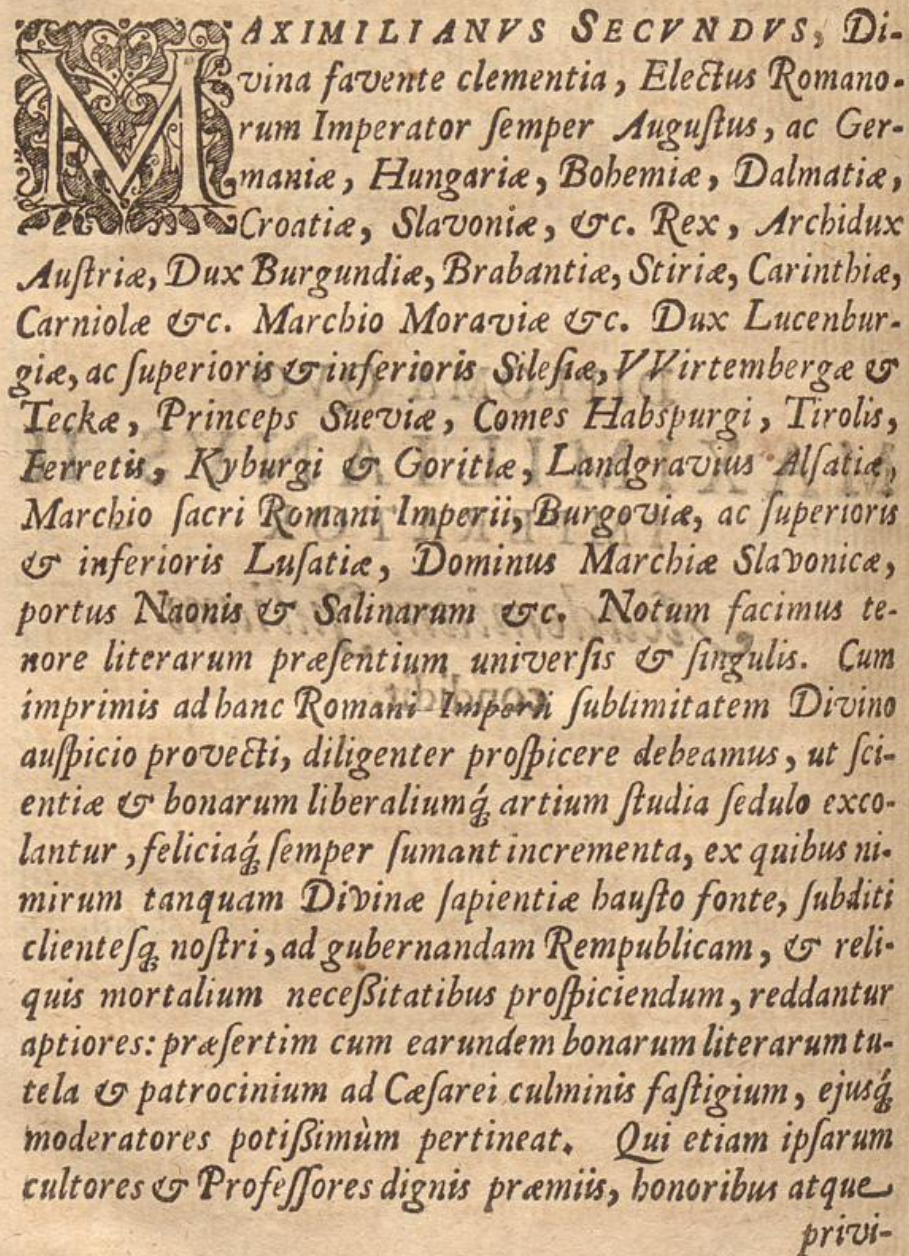 MAXIMILIANVS SECVNDVS, Di-
vina favente clementia, Electus Romano-
rum Imperator ſemper Auguſtus, ac Ger-
maniæ, Hungariæ, Bohemiæ, Dalmatiæ,
Croatiæ, Slavoniæ, &c. Rex, Archidux
Auſtriæ, Dux Burgundiæ, Brabantiæ, Stiriæ, Carinthiæ,
Carniolæ &c. Marchio Moraviæ &c. Dux Lucenbur-
giæ, ac ſuperioris & inferioris Sileſiæ, VVirtembergæ &
Teckæ, Princeps Sueviæ, Comes Habspurgi, Tirolis,
Ferretis, Kyburgi & Goritiæ, Landgravius Alſatiæ,
Marchio ſacri Romani Imperii, Burgoviæ, ac ſuperioris
& inferioris Luſatiæ, Dominus Marchiæ Slavonicæ,
portus Naonis & Salinarum &c. Notum facimus te-
nore literarum præſentium univerſis & ſingulis. Cum
imprimis ad hanc Romani Imperii ſublimitatem Divino
auſpicio provecti, diligenter proſpicere debeamus, ut ſci-
entiæ & bonarum liberaliumq́ artium ſtudia ſedulo exco-
lantur, feliciaq́ ſemper ſumant incrementa, ex quibus ni-
mirum tanquam Divinæ ſapientiæ hauſto fonte, ſubditi
clienteſq noſtri, ad gubernandam Rempublicam, & reli-
quis mortalium neceßitatibus proſpiciendum, reddantur
aptiores: præſertim cum earundem bonarum literarum tu-
tela & patrocinium ad Cæſarei culminis faſtigium, ejusq́
moderatores potißimùm pertineat. Qui etiam ipſarum
cultores & Profeſſores dignis præmiis, honoribus atque
privi-